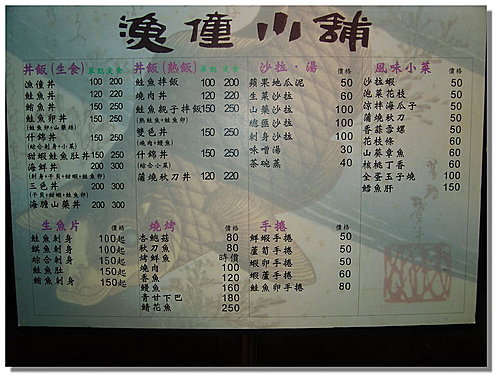 漁僮小舖
丼飯(生食) 單點 定食
漁僮丼 120 220
鮭魚丼 120 220
鮪魚丼 150 250
鮭魚卵丼 150 250
(鮭魚卵+山藥絲)
什錦丼 150 250
(綜合刺身+小菜)
甜蝦鮭魚肚丼 150 250
海鮮丼 200 300
(刺身+干貝+甜蝦+鮭魚卵)
三色丼 200 300
(干貝+甜蝦+鮭魚卵)
海膽山藥丼 200 300
丼飯(熟飯) 單點 定食
鮭魚拌飯 100 200
燒肉丼 120 220
鮭魚親子拌飯 150 250
(熟鮭魚+鮭魚卵)
雙色丼 150 250
(燒肉+鰻魚)
什錦丼 150 250
(綜合小菜)
蒲燒秋刀丼 120 220
沙拉‧湯 價格
蘋果地瓜泥 50
生菜沙拉 50
山藥沙拉 60
總匯沙拉 100
刺身沙拉 100
味噌湯 30
茶碗蒸 40
風味小菜 價格
沙拉蝦 50
泡菜花枝 50
涼拌海瓜子 50
蒲燒秋刀 50
香蒜蓉螺 50
花枝條 60
山葵章魚 60
核桃丁香 60
全蛋玉子燒 100
鱈魚肝 150
生魚片 價格
鮭魚刺身 100起
旗魚刺身 100起
綜合刺身 150起
鮭魚肚 150起
鮪魚刺身 150起
燒烤 價格
杏鮑菇 80
秋刀魚 80
烤鮮魚 時價
燒肉 100
香魚 120
鰻魚 160
青甘下巴 180
鯖花魚 250
手捲 價格
鮮蝦手捲 50
蘆筍手捲 50
蝦卵手捲 50
蝦蘆手捲 60
鮭魚卵手捲 80